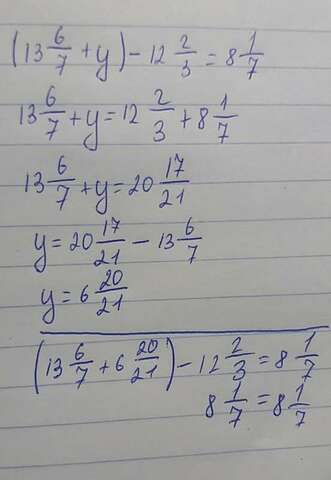 (13 6/7 + y) - 12 2/3 = 8 1/7
13 6/7 + y = 12 2/3 + 8 1/7
13 6/7 + y = 20 17/21
y = 20 17/21 - 13 6/7
y = 6 20/21
(13 6/7 + 6 20/21) - 12 2/3 = 8 1/7
8 1/7 = 8 1/7